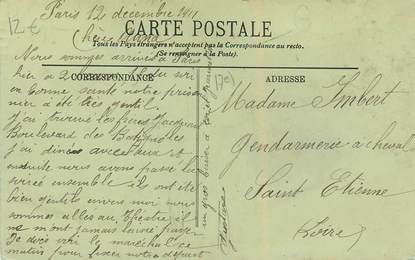 12€
Paris 12 decembre 1911
CARTE POSTALE
Tous les Pays étrangers n'acceptent pas la Correspondance au recto.
(Se renseigner à la Poste).
Nous sommes arrivés à Paris
hier à 2
CORRESPONDANCE
ADRESSE
en bonne santé notre prison
nier a été très gentil.
J'ai trouvé les frères Jacquou
Boulevard des Batignoles
j'ai diner avec eux et
ensuite nous avons passé la
soirée ensemble ils ont été
bien gentils envers moi nous
sommes allés au théatre il
ne mont jamais laissé payer
Je dois voir le maréchal ce
matin pour fixer notre départ
un gros baiser a
Madame Imbert
Gendarmerie à cheval
Saint Etienne
Loire